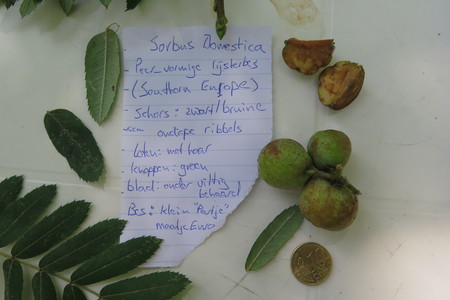 Sorbus Domestica
Peer_vormige lijsterbes
(Southern Europe)
Schors: zwart/bruine
ondiepe ribbels
Loten: met haar
knoppen: green
blad: onder viltig
behaard
Bes: klein "Peertje"
maatje Euro